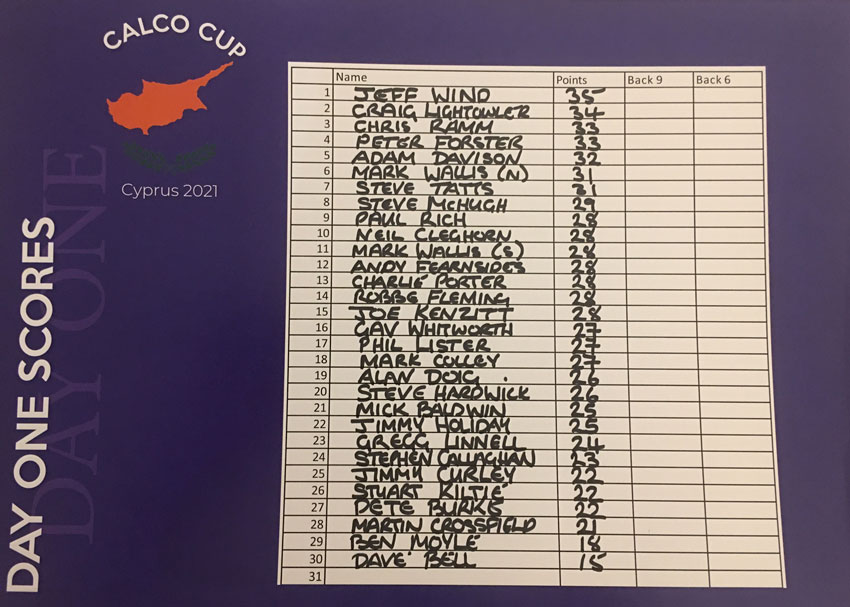 CALCO CUP
Cyprus 2021
DAY ONE SCORES
DAY ONE
Name Points Back 9 Back 6
1 JEFF WIND 35
2 CRAIG LIGHTOWLER 34
3 CHRIS RAMM 33
4 PETER FORSTER 33
5 ADAM DAVISON 32
6 MARK WALLIS (N) 31
7 STEVE TATTS 31
8 STEVE McHUGH 29
9 PAUL RICH 28
10 NEIL CLEGHORN 28
11 MARK WALLIS (S) 28
12 ANDY FEARNSIDES 28
13 CHARLIE PORTER 28
14 ROBBE FLEMING 28
15 JOE KENZITT 28
16 GAV WHITWORTH 27
17 PHIL LISTER 27
18 MARK COLLEY 27
19 ALAN DOIG . 26
20 STEVE HARDWICK 26
21 MICK BALDWIN 25
22 JIMMY HOLIDAY 25
23 GREGG LINNELL 24
24 STEPHEN CALLAGHAN 23
25 JIMMY CURLEY 22
26 STUART KILTIE 22
27 PETE BURKE 22
28 MARTIN CROSSFIELD 21
29 BEN MOYLE 18
30 DAVE BELL 15
31